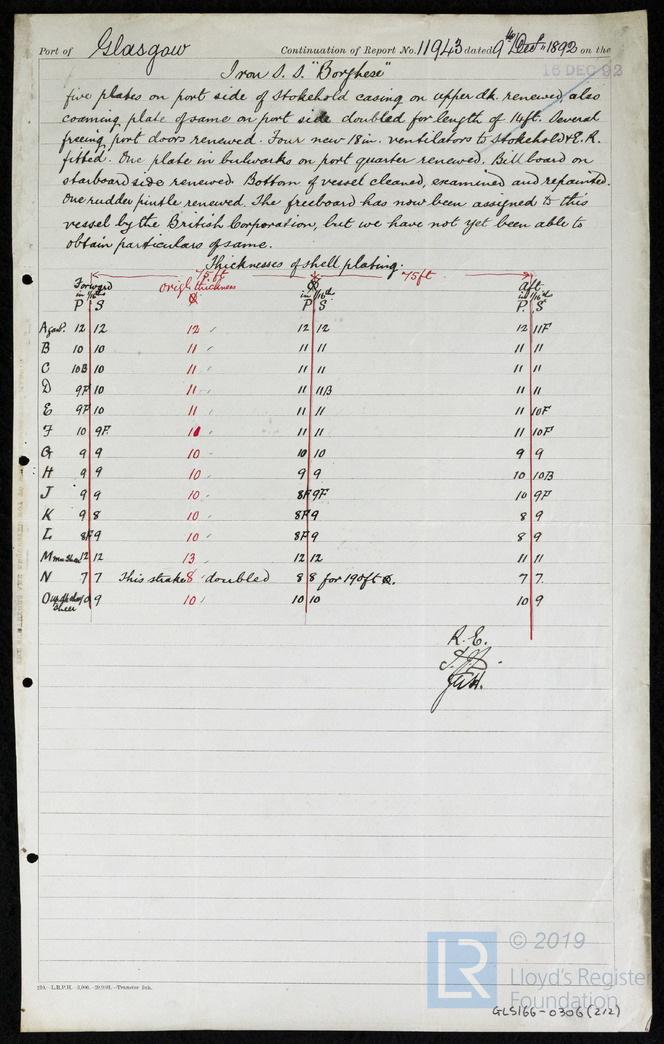 Port of Glasgow Continuation of Report No. 11943 dated 9th Dec. 1892 on the
16 DEC 92
Iron S. S. "Borghese"
five plates on port side of Stokehold casing on upper dk. renewed, also
coaming plate of same on port side doubled for length of 14ft. Several
freeing port doors renewed. Four new 18in. ventilators to Stokehold & E.R.
fitted. One plate in bulwarks on port quarter renewed. Bill board on
starboard side renewed. Bottom of vessel cleaned, examined and repainted.
One rudder pintle renewed. The freeboard has now been assigned to this
vessel by the British Corporation, but we have not yet been able to
obtain particulars of same.
Thicknesses of shell plating.
75 ft 75 ft
Forward origl. thickness ⦻ Aft
in 1/16ths ⦻ in 1/16ths in 1/16ths
P. S P. S P. S
A 12 12 12 12 12 12 11F
B 10 10 11 " 11 11 11 11
C 10B 10 11 " 11 11 11 11
D 9F 10 11 " 11 11B 11 11
E 9F 10 11 " 11 11 11 10F
F 10 9F 11 11 11 10F
G 9 9 10 " 10 10 9 9
H 9 9 10 " 9 9 10 10B
J 9 9 10 " 8F 9F 10 9F
K 9 8 10 " 8F 9 8 9
L 8F 9 10 " 8F 9 8 9
M 12 12 13 12 12 11 11
N 7 7 This strake 8 doubled 8 8 for 190ft ⦻. 7 7.
O 9 10 10 10 10 9
Sheer
R. E.
219.—L.R.P.H.
—Transfer Ink.
LR
© 2019
Lloyd's Register
Foundation
GLS166-0306(2/2)